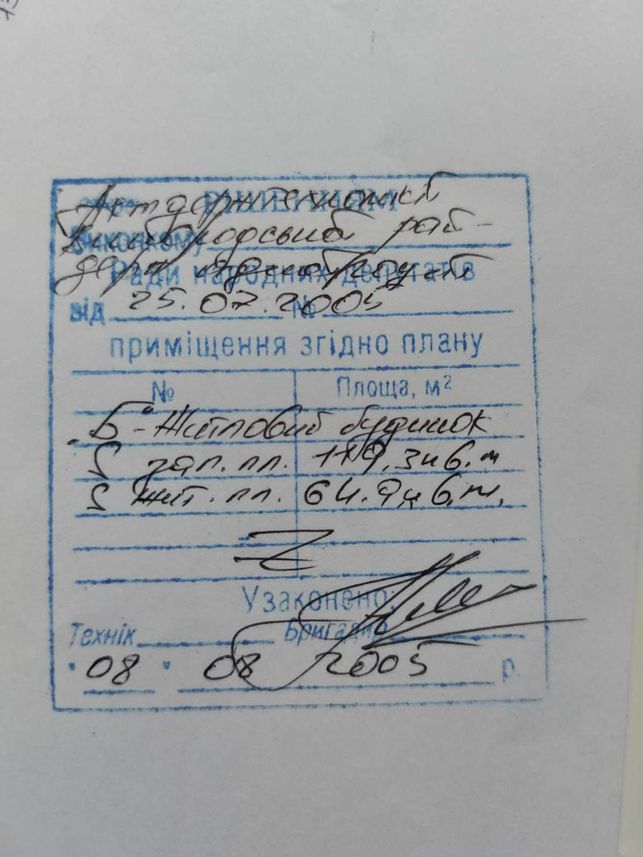 Рішенням
Акт держтехкомісії
Виконкому
рай-
Ради народних депутатів
від 25.07.2005 №
приміщення згідно плану
№ Площа, м²
"Б"- Житловий будинок
S заг. пл. 119,3 кв.м
S жит. пл. 64.9 кв.м.
Узаконено:
Технік Бригадир
"08" 08 2005 р.